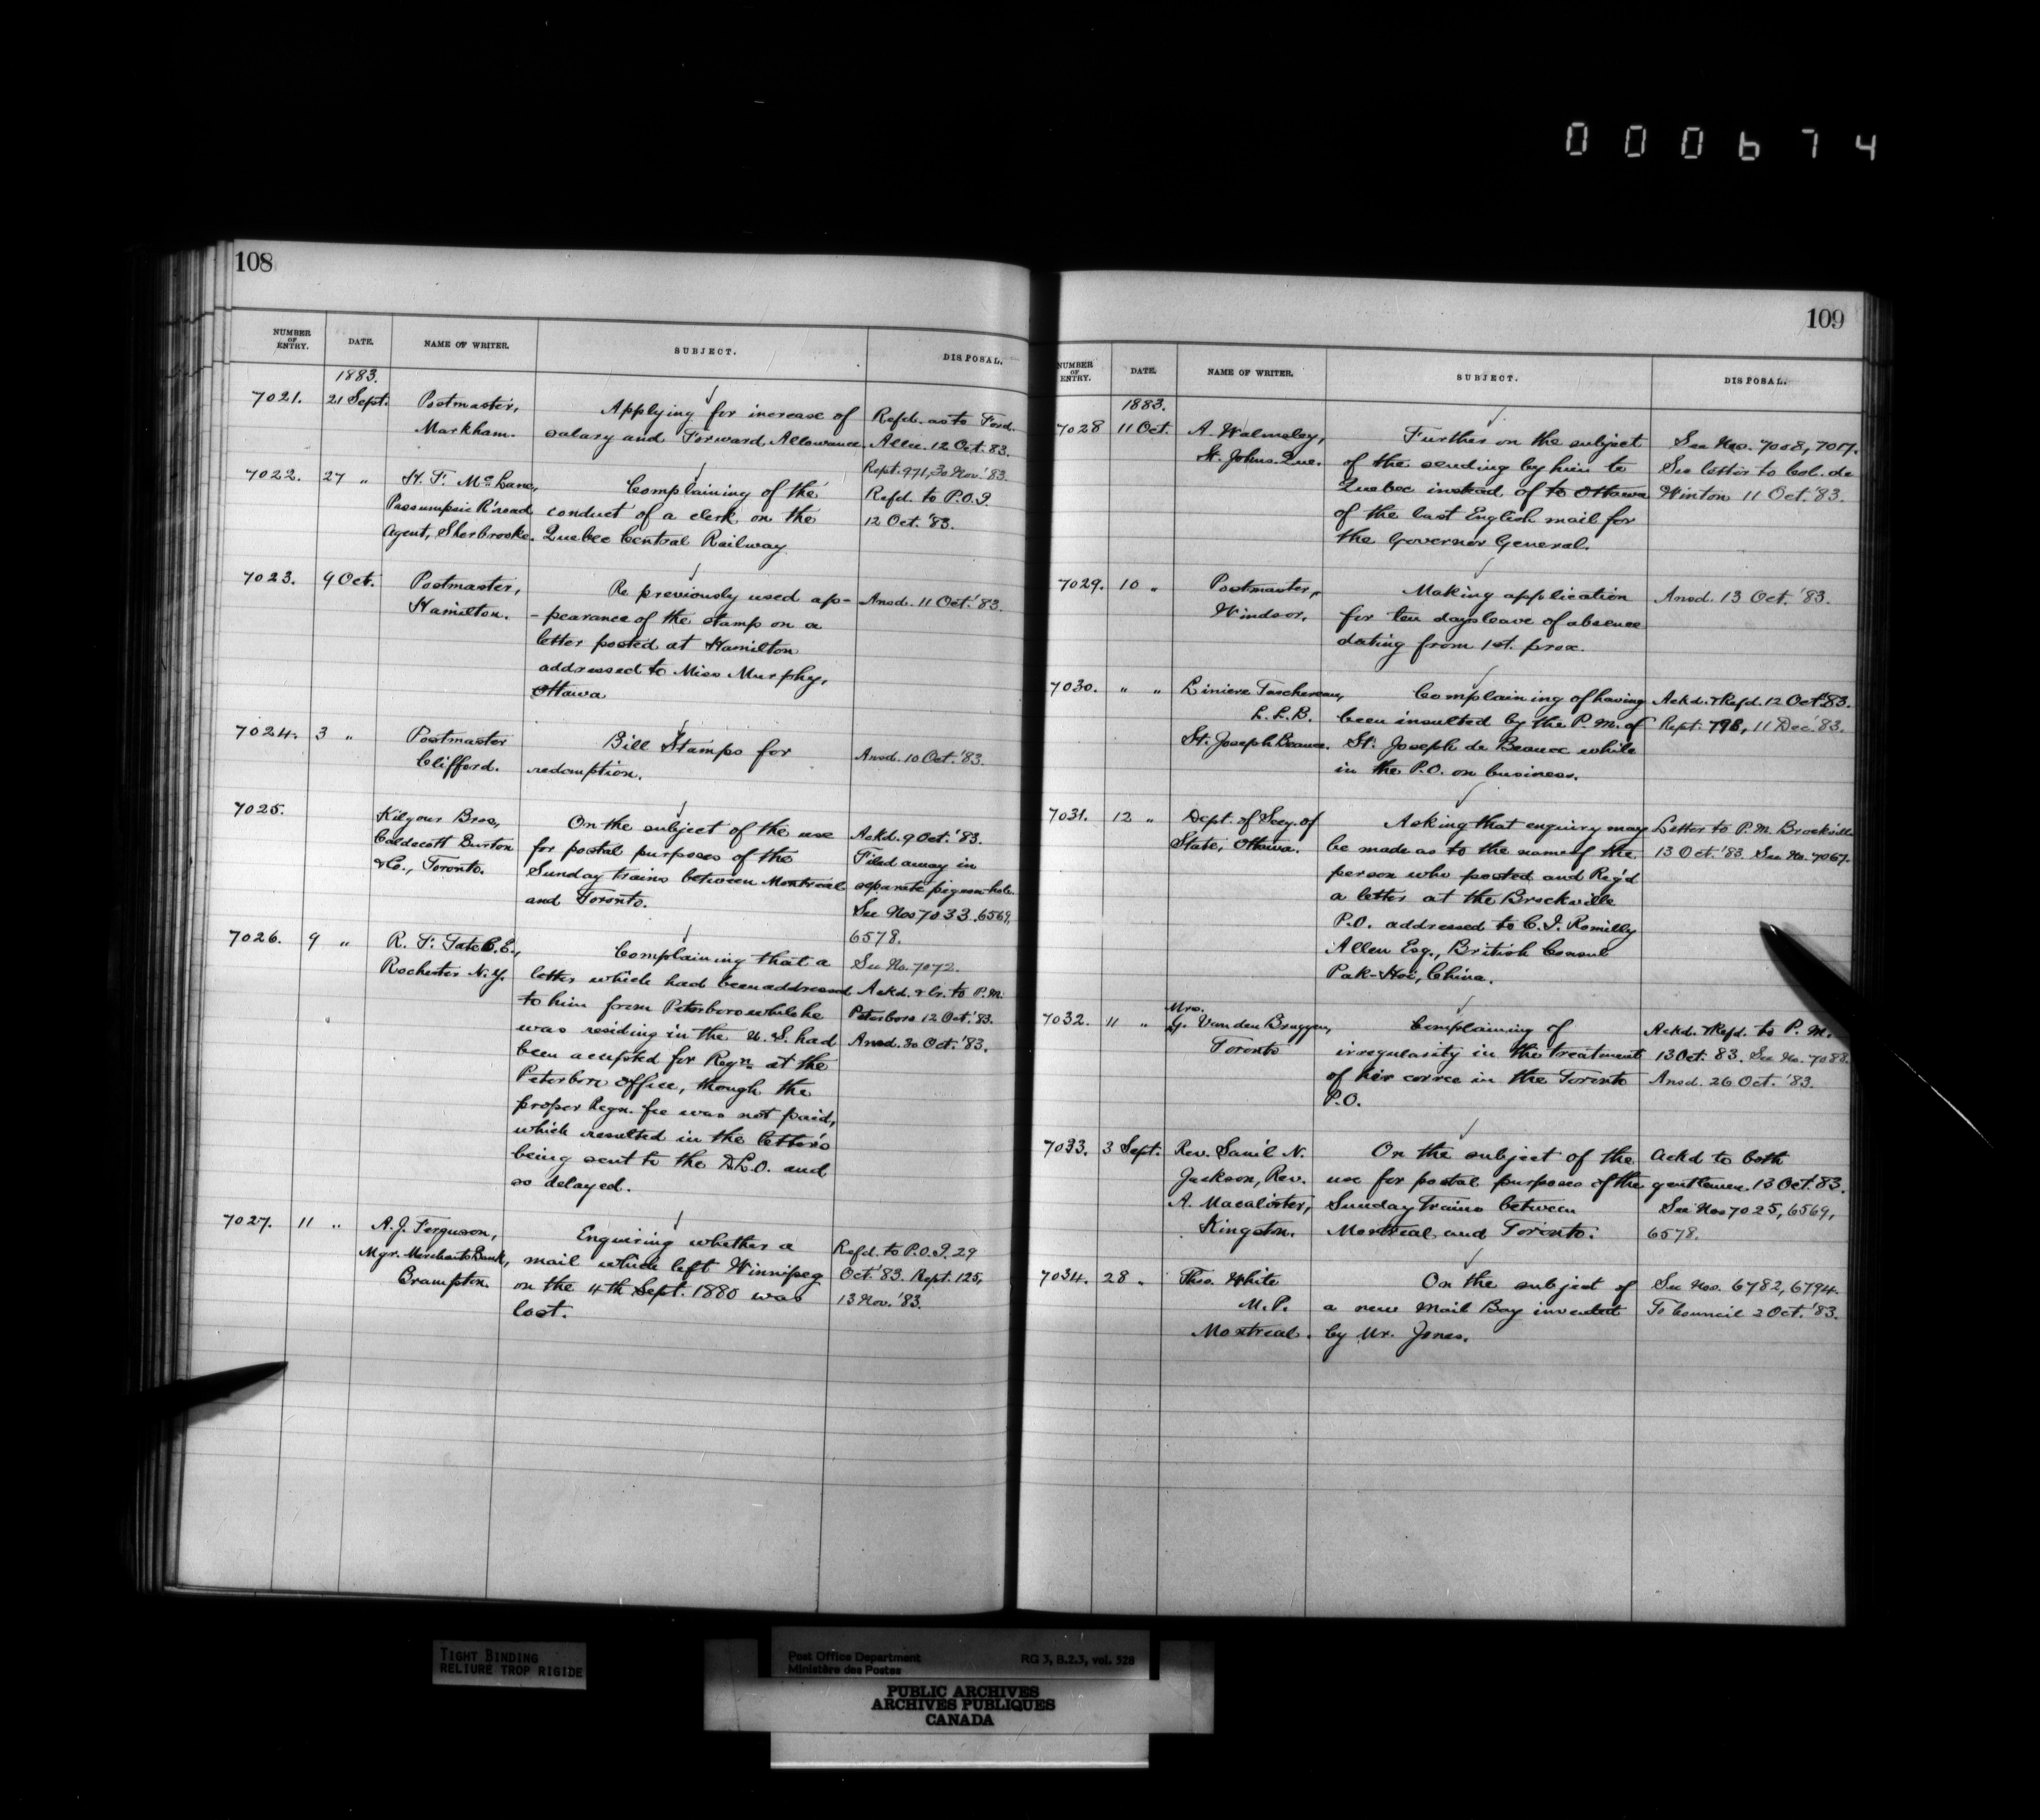 000674
108
NUMBER OF ENTRY. DATE. NAME OF WRITER. SUBJECT. DISPOSAL.
1883.
7021. 21 Sept. Postmaster, Applying for increase of Refd. as to Forwd.
Markham. salary and Forward Allowance. Allce. 12 Oct. '83.
Rept. 971, 30 Nov. '83.
7022. 27 " H. F. McLane, Complaining of the Refd. to P.O.I.
Passumpsic R'road conduct of a clerk on the 12 Oct. '83.
Agent, Sherbrooke. Quebec Central Railway.
7023. 9 Oct. Postmaster, Re previously used ap- Ansd. 11 Oct. '83.
Hamilton. -pearance of the stamp on a
letter posted at Hamilton
addressed to Miss Murphy,
Ottawa
7024. 3 " Postmaster Bill Stamps for Ansd. 10 Oct. '83.
Clifford. redemption.
7025. Kilgour Bros, On the subject of the use Ackd. 9 Oct. '83.
Caldecott Burton for postal purposes of the Filed away in
& Co., Toronto. Sunday trains between Montreal separate pigeon-hole.
and Toronto. See Nos 7033, 6569,
6578.
7026. 9 " R. F. Tate C.E., Complaining that a See No. 7072.
Rochester N.Y. letter which had been addressed Ackd. & Cr. to P.M.
to him from Peterboro while he Peterboro 12 Oct. '83.
was residing in the U.S. had Ansd. 30 Oct. '83.
been accepted for Regn. at the
Peterboro office, though the
proper Regn. fee was not paid,
which resulted in the letter's
being sent to the D.L.O. and
so delayed.
7027. 11 " A.J. Ferguson, Enquiring whether a Refd. to P.O.I. 29
Mgr. Merchants Bank, mail which left Winnipeg Oct. '83. Rept. 125,
Brampton. on the 4th Sept. 1880 was 13 Nov. '83.
lost.
109
NUMBER OF ENTRY. DATE. NAME OF WRITER. SUBJECT. DISPOSAL.
1883.
7028 11 Oct. A. Walmsley, Further on the subject See Nos. 7008, 7017.
St. Johns. Que. of the sending by him to See letter to Col. de
Quebec instead of to Ottawa Winton 11 Oct. '83.
of the last English mail for
the Governor General.
7029. 10 " Postmaster, Making application Ansd. 13 Oct. '83.
Windsor. for ten days leave of absence
dating from 1st. prox.
7030. " " Liniere Taschereau, Complaining of having Ackd. & Refd. 12 Oct. '83.
L.L.B. been insulted by the P.M. of Rept. 11 Dec. '83.
St. Joseph Beauce. St. Joseph de Beauce while
in the P.O. on business.
7031. 12 " Dept. of Secy. of Asking that enquiry may Letter to P.M. Brockville
State, Ottawa. be made as to the name of the 13 Oct. '83. See No. 7067.
person who posted and Reg'd
a letter at the Brockville
P.O. addressed to C.I. Romilly
Allen Esq., British Consul
Pak-Hoi, China.
7032. 11 " Mrs.
G. Van den Bruggen, Complaining of Ackd. & Refd. to P.M.
Toronto irregularity in the treatment 13 Oct. 83. See No. 7088.
of her corrce in the Toronto Ansd. 26 Oct. '83.
P.O.
7033. 3 Sept. Rev. Saml N. On the subject of the Ackd to both
Jackson, Rev. use for postal purposes of the gentlemen. 13 Oct. '83.
A. Macalister, Sunday Trains between See Nos 7025, 6569,
Kingston. Montreal and Toronto. 6578.
7034. 28 " Thos. White On the subject of See Nos. 6782, 6794.
M.P. a new Mail Bag invented To Council 2 Oct. '83.
Montreal. by Mr. Jones.
TIGHT BINDING
RELIURE TROP RIGIDE
Post Office Department RG 3, B.2.3, vol. 528
Ministère des Postes
PUBLIC ARCHIVES
ARCHIVES PUBLIQUES
CANADA